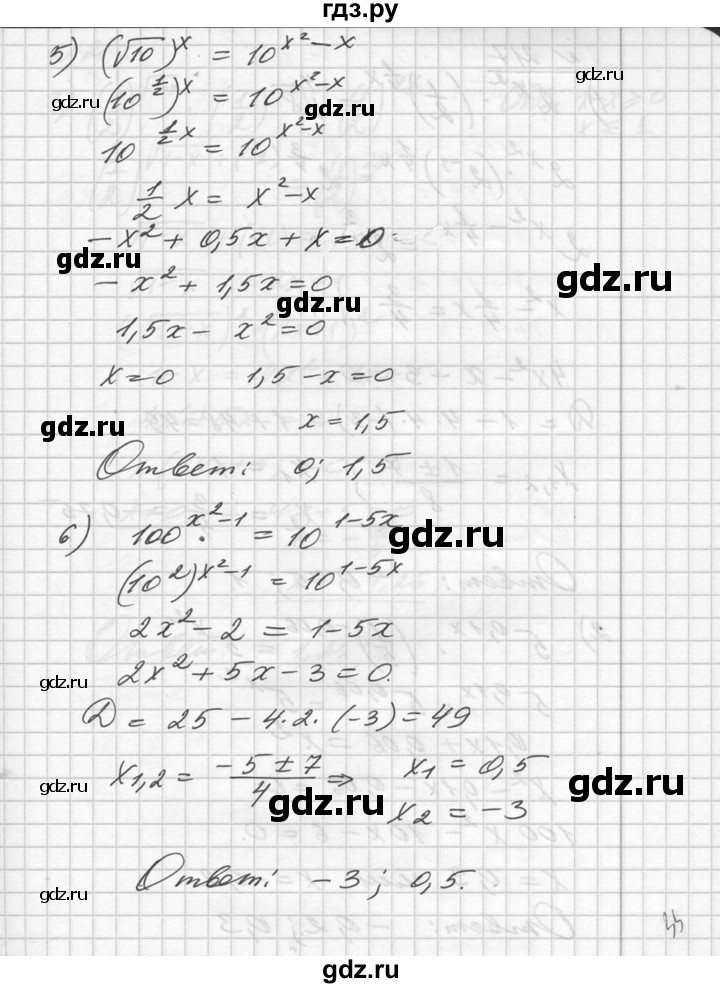 гдз.ру
5) (√10)^x = 10^{x²-x}
gdz.ru (10^{1/2})^x = 10^{x²-x} gdz.ru
gdz.ru
10^{1/2 x} = 10^{x²-x}
1/2 x = x²-x
-x² + 0,5x + x = 0
gdz.ru
gdz.ru
-x² + 1,5x = 0
gdz.ru
1,5x - x² = 0
x = 0 1,5 - x = 0
gdz.ru x = 1,5
Ответ: 0; 1,5
6) 100^{x²-1} = 10^{1-5x}
gdz.ru
(10²)^{x²-1} = 10^{1-5x}
2x² - 2 = 1-5x
gdz.ru 2x² + 5x - 3 = 0.
Д = 25 - 4·2·(-3) = 49
x1,2 = (-5 ± 7)/4 ⇒ x1 = 0,5
gdz.ru gdz.ru gdz.ru
x2 = -3
Ответ: -3; 0,5.
gdz.ru
44
gdz.ru